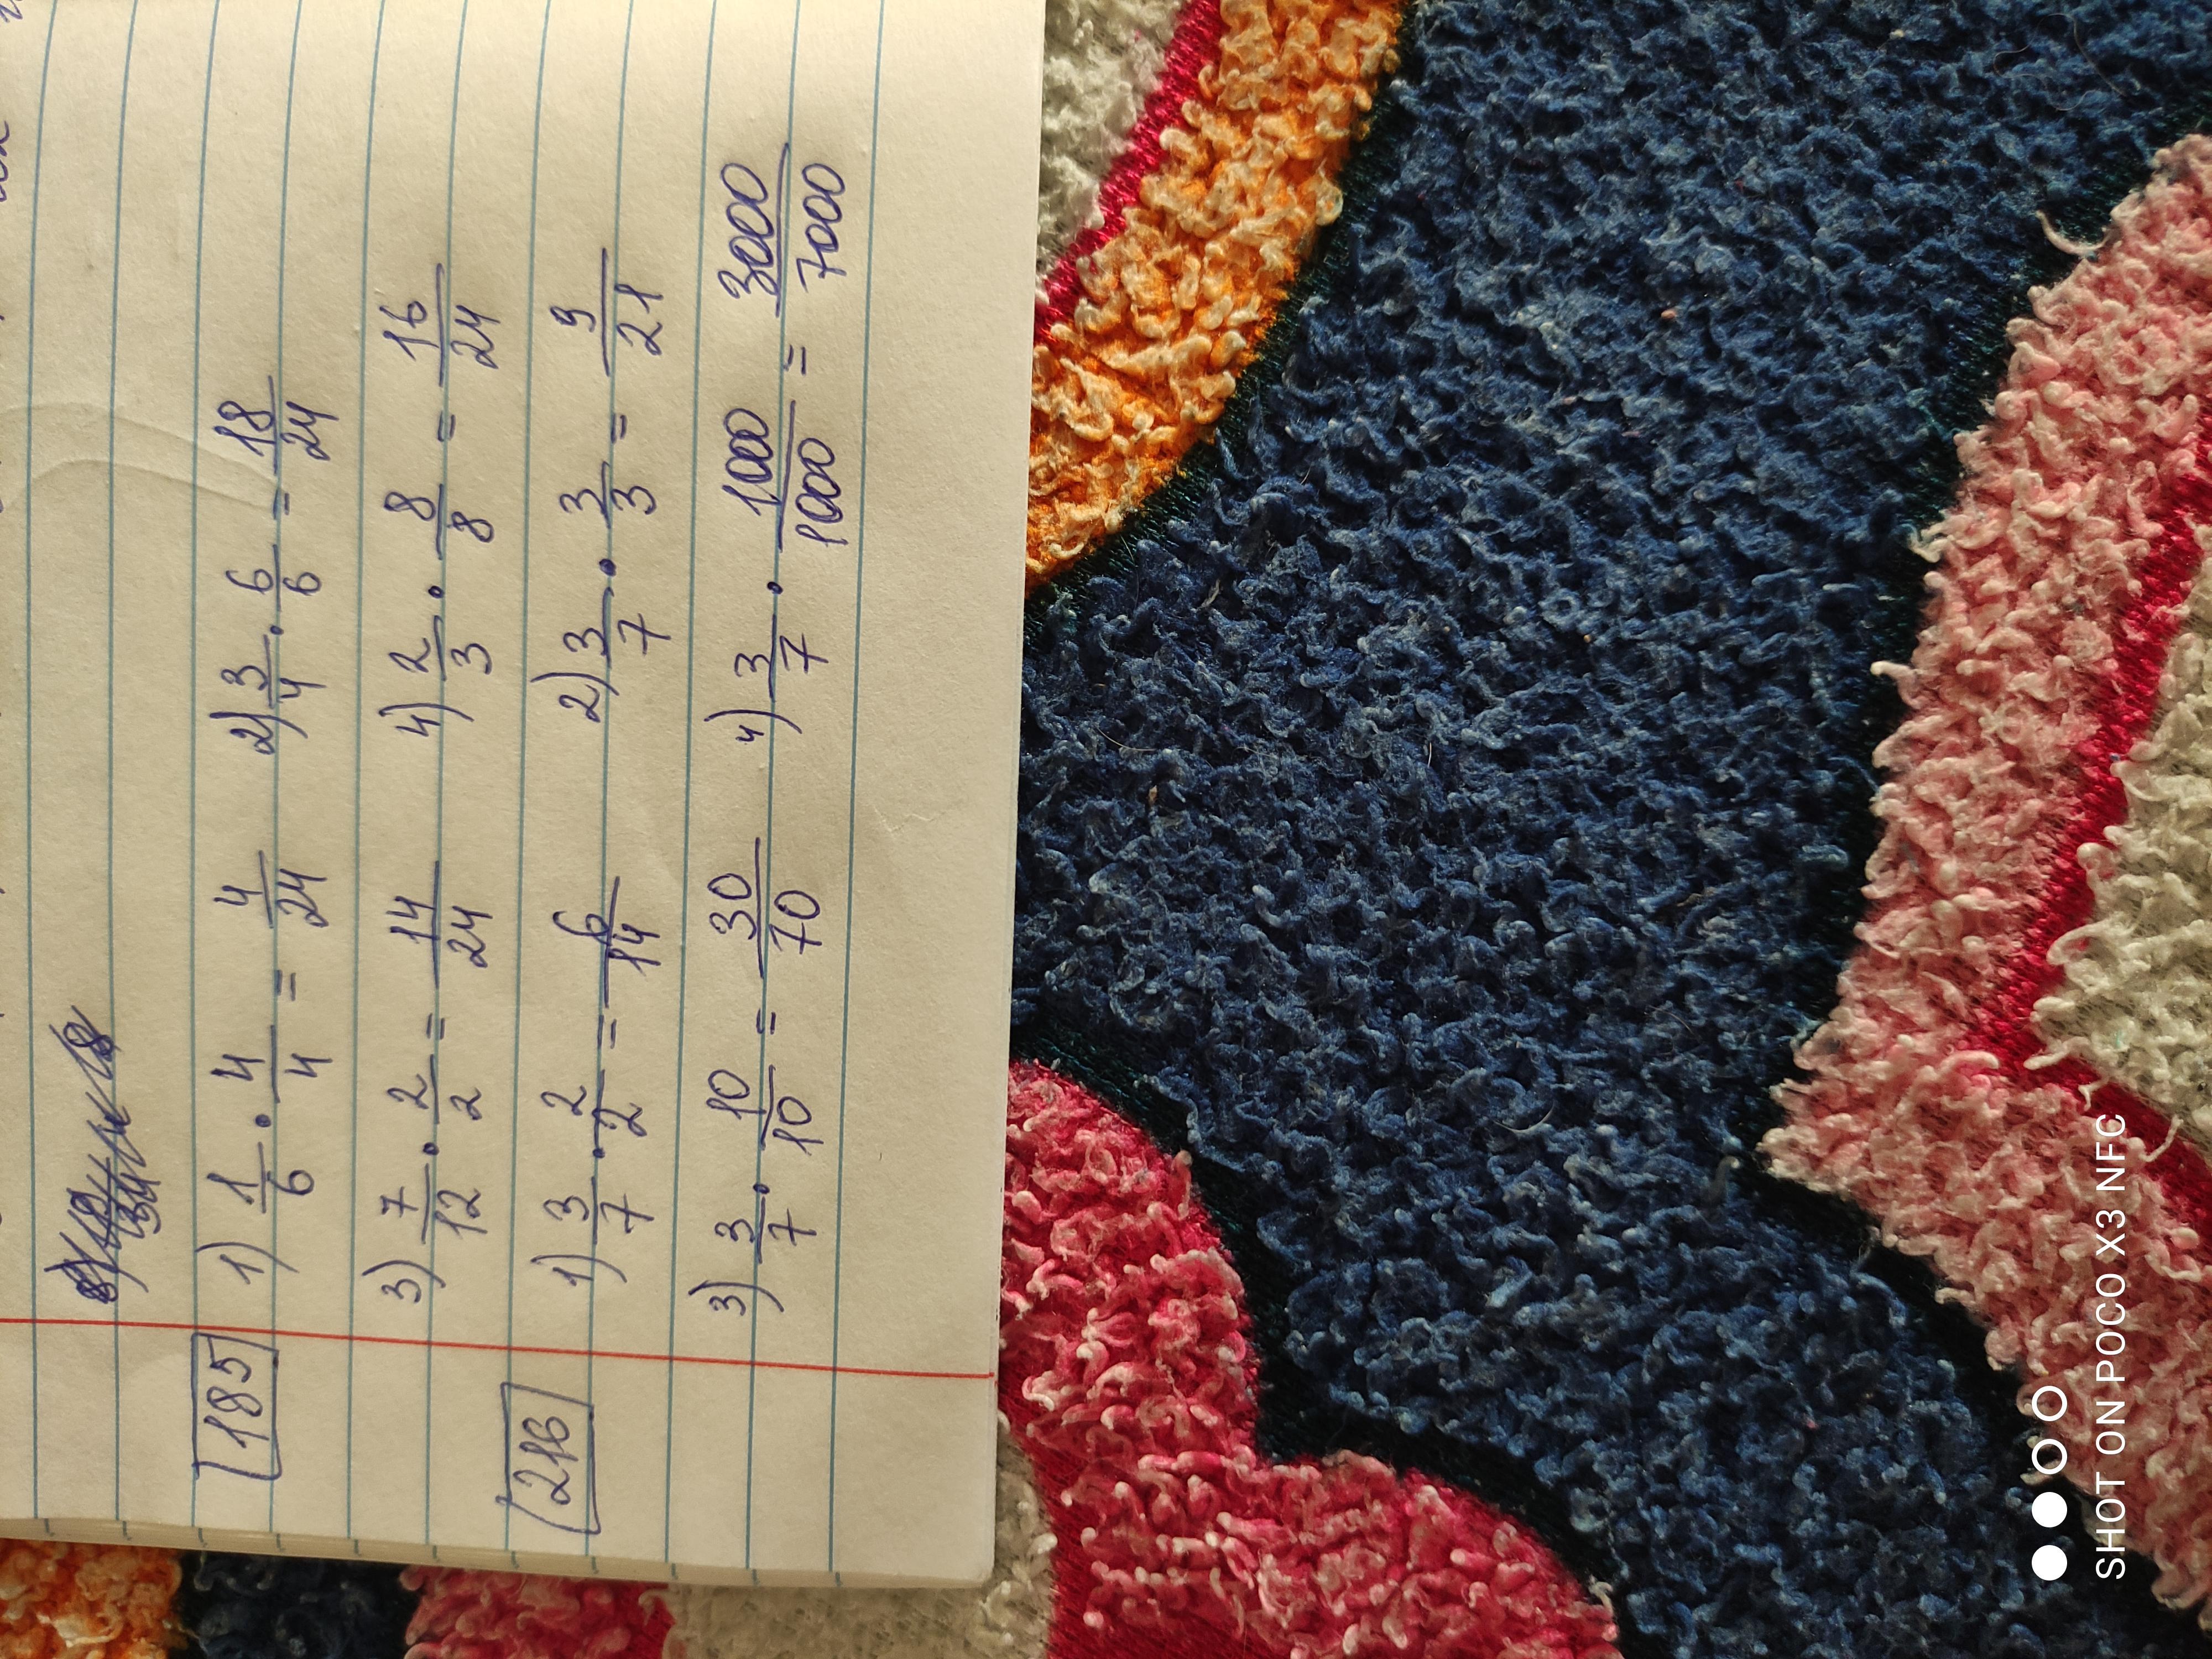 185 1) 1/6 · 4/4 = 4/24 2) 3/4 · 6/6 = 18/24
3) 7/12 · 2/2 = 14/24 4) 2/3 · 8/8 = 16/24
216 1) 3/7 · 2/2 = 6/14 2) 3/7 · 3/3 = 9/21
3) 3/7 · 10/10 = 30/70 4) 3/7 · 1000/1000 = 3000/7000
SHOT ON POCO X3 NFC